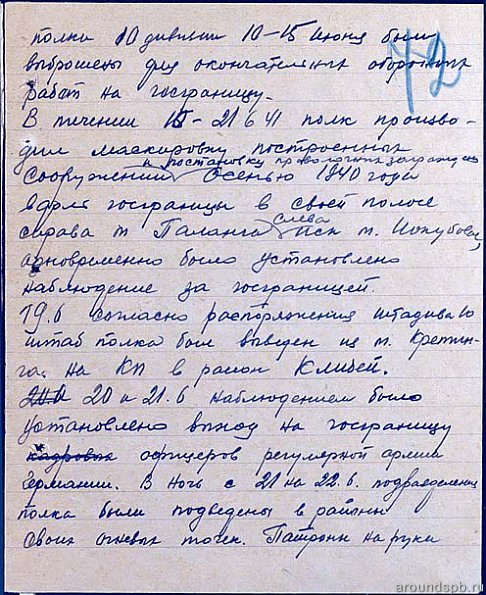 72
полка 10 дивизии 10-15 июня были
выброшены для окончательных оборонных
работ на госграницу.
В течении 15-21 6 41 полк произво-
дил маскировку построенных
и постановку проволочных заграждений
сооружений осенью 1940 года
вдоль госграницы в своей полосе
слева
справа м Паланга иск м.
одновременно было установлено
наблюдение за госграницей.
19.6 согласно распоряжения штадива 10
штаб полка был выведен из м. Кретин-
га. на КП в район Клибей.
20 и 21.6 наблюдением было
установлено выход на госграницу
кадровых офицеров регулярной армии
Германии. В ночь с 21 на 22.6. подразделения
полка были подведены в районы
своих огневых точек. Патроны на руки
aroundspb.ru